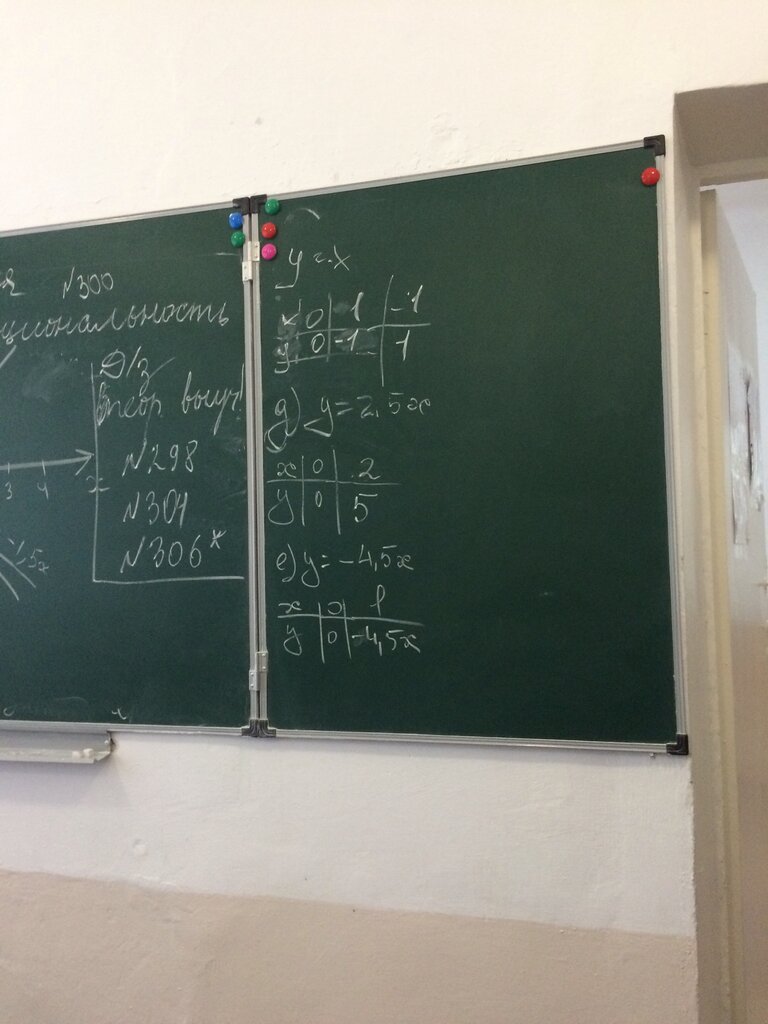 №300
циональность
Д/з
выуч!
№298
№304
№306*
3 4 x
y=-x
x 0 1 -1
y 0 -1 1
д) y=2,5x
x 0 2
y 0 5
е) y=-4,5x
x 0 1
y 0 -4,5x